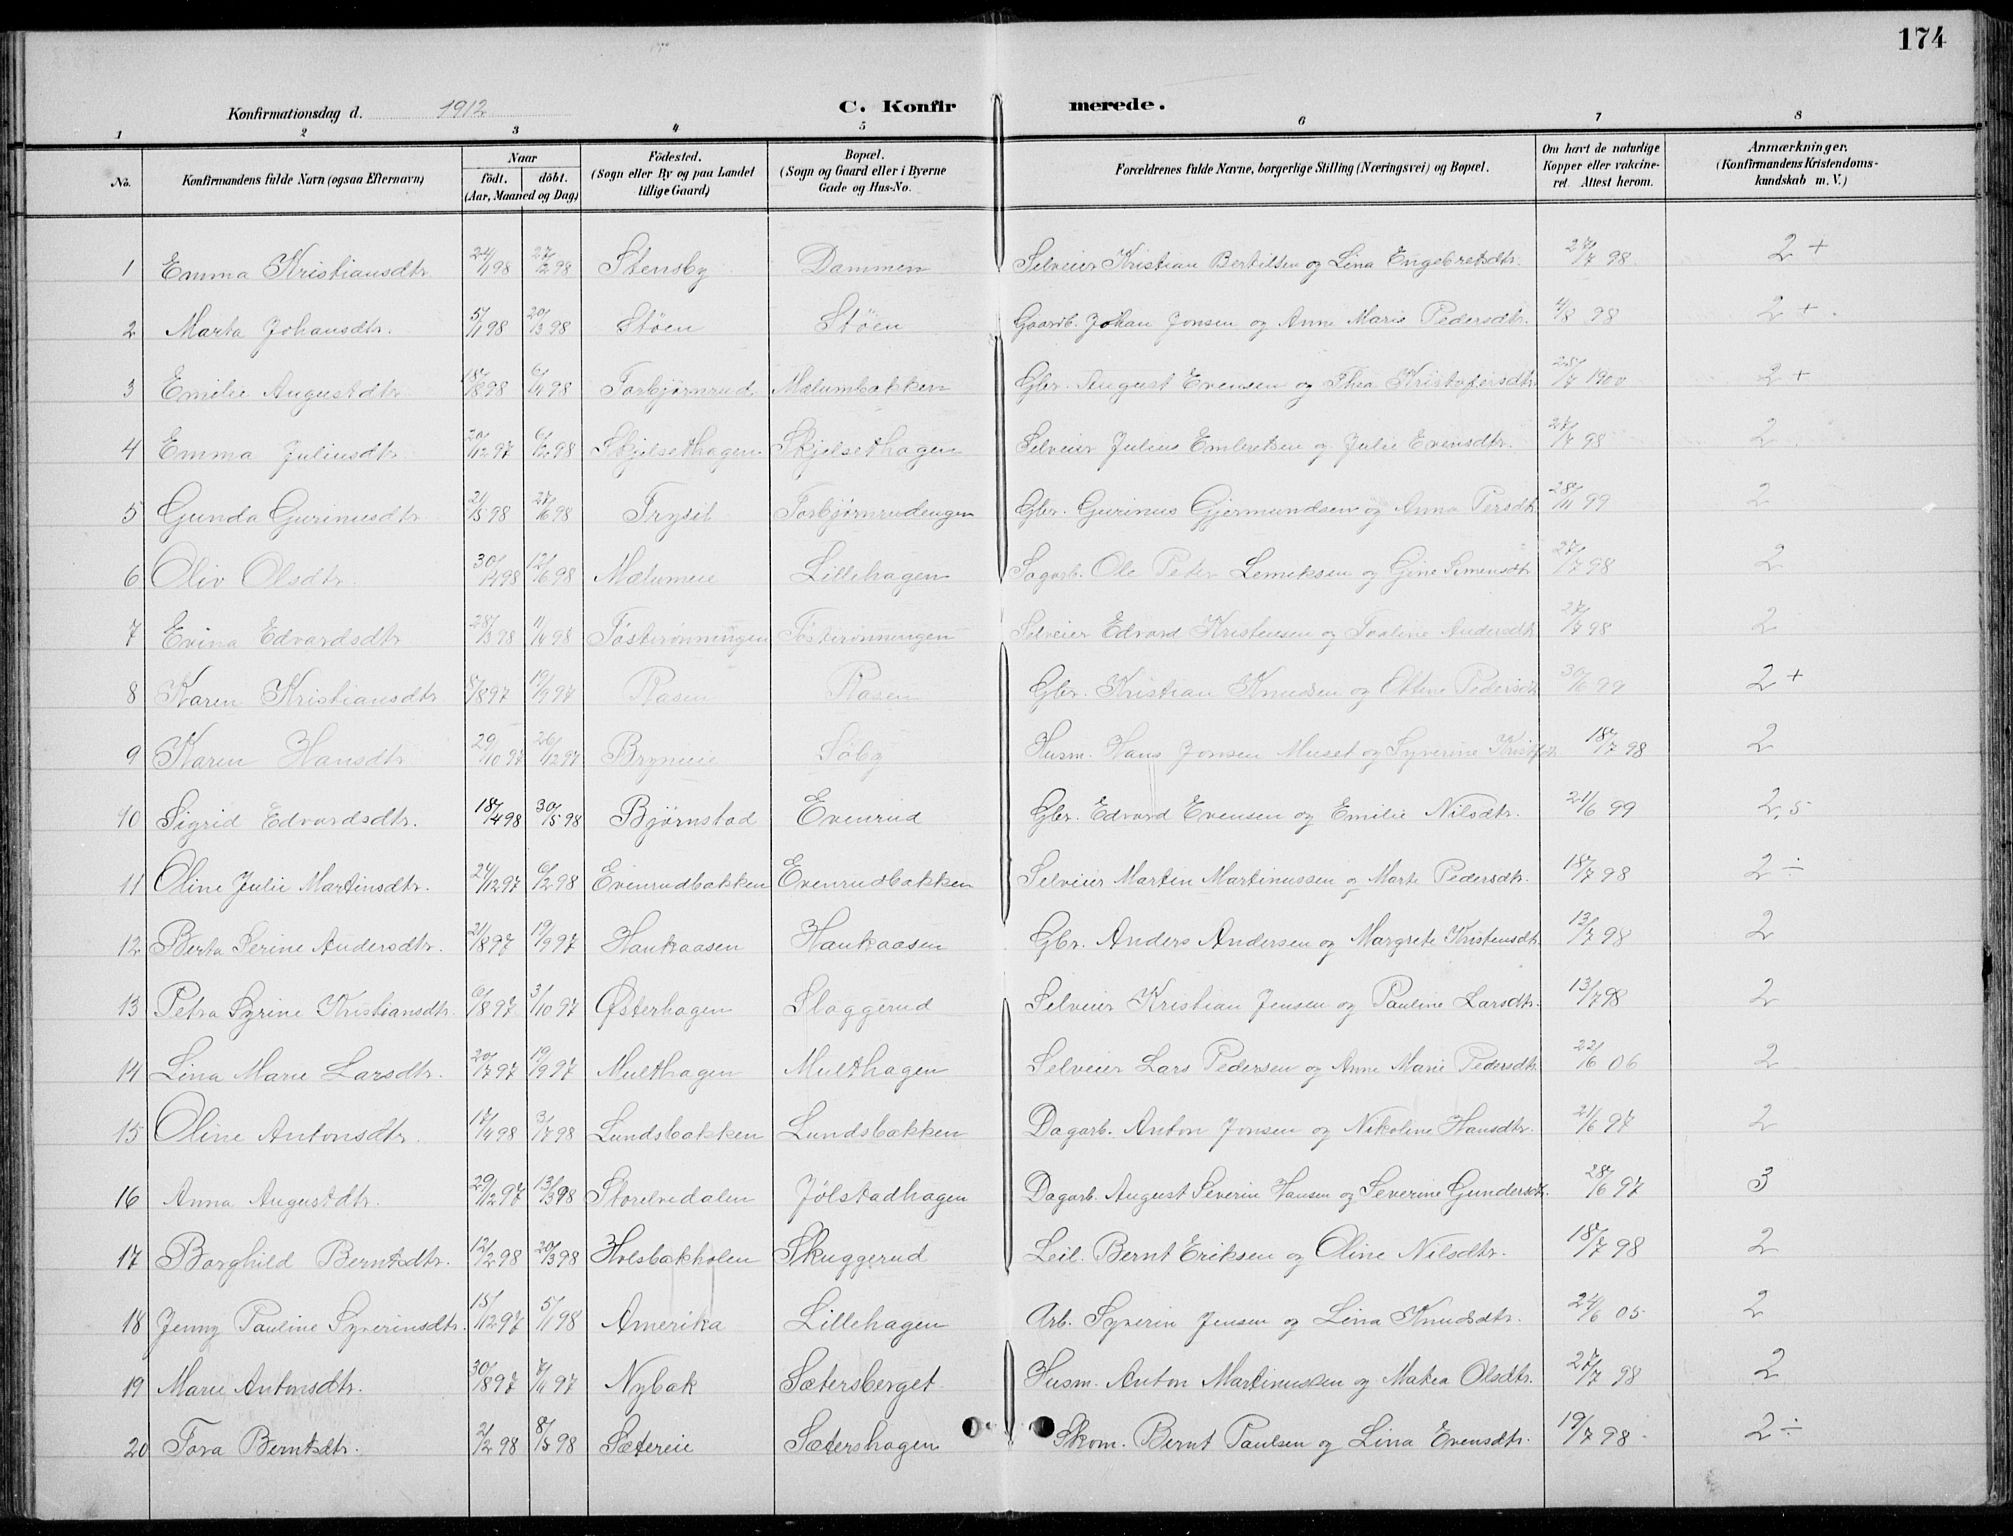 174
Konfirmationsdag d. 1912 C. Konfirmerede.
1 2 3 4 5 6 7 8
No. Konfirmandens fulde Navn (ogsaa Efternavn) Naar født. døbt. (Aar, Maaned og Dag) Fødested. (Sogn eller By og paa Landet tillige Gaard) Bopæl. (Sogn og Gaard eller i Byerne Gade og Hus-No. Forældrenes fulde Navne, borgerlige Stilling (Næringsvei) og Bopæl. Om havt de naturlige Kopper eller vakcineret. Attest herom. Anmærkninger. (Konfirmandens Kristendomskundskab m. V.)
1 Emma Kristiansdtr. 24/1 98 27/2 98 Stensby Dammen Selveier Kristian Bertilsen og Lina Engebretsdtr. 27/7 98 2+
2 Marta Johansdtr. 5/1 98 20/3 98 Støen Støen Gaardb. Johan Jonsen og Anne Marie Pedersdtr. 4/8 98 2+
3 Emilie Augustdtr. 98 98 Torbjørnrud Mælumbakken Gbr. August Evensen og Thea Kristofersdtr 28/7 1900 2+
4 Emma Juliusdtr. 20/12 97 6/2 98 Skjelsethagen Skjelsethagen Selveier Julius Embretsen og Julie Evensdtr. 27/7 98 2
5 Gunda Gurinusdtr. 98 98 Trysil Torbjørnrudengen Gbr. Gurinus Gjermundsen og Anna Persdtr 28/11 99 2
6 Oliv Olsdtr. 98 12/6 98 Mælumeie Lillehagen Sagarb. Ole Peter Lemiksen og Gine Simensdtr 27/7 98 2
7 Evina Edvardsdtr 28/3 98 98 Tosterønningen Tosterønningen Selveier Edvard Kristensen og Tooline Andersdtr 27/7 98 2
8 Karen Kristiansdtr. 8/8 97 19/9 97 Rasen Rasen Gbr. Kristian Knudsen og Oline Pedersdtr 30/6 99 2+
9 Karen Hansdtr 29/10 97 26/12 97 Brymeie Søby Husm. Hans Jonsen Muset og Syverine Kristofer 18/7 98 2
10 Sigrid Edvardsdtr. 18/4 98 30/5 98 Bjørnstad Evenrud Gbr. Edvard Evensen og Emilie Nilsdtr. 21/6 99 2,5
11 Oline Julie Martinsdtr. 24/12 97 6/2 98 Evenrudbakken Evenrudbakken Selveier Marten Martinussen og Marte Pedersdtr. 18/7 98 2÷
12 Berta Serine Andersdtr. 21/8 97 19/9 97 Haukaasen Haukaasen Gbr. Anders Andersen og Margrete Kristensdtr. 13/7 98 2
13 Petra Syrine Kristiansdtr. 6/8 97 3/10 97 Østerhagen Slaggerud Selveier Kristian Jensen og Pauline Larsdtr. 13/7 98 2
14 Lina Marie Larsdtr. 20/7 97 19/9 97 Multhagen Multhagen Selveier Lars Pedersen og Anne Marie Pedersdtr. 22/6 06 2
15 Oline Antonsdtr. 17/4 98 3/7 98 Lundsbakken Lundsbakken Dagarb. Anton Jonsen og Nikoline Hansdtr. 21/6 97 2
16 Anna Augustdtr. 29/12 97 13/3 98 Storelvedalen Jølstadhagen Dagarb. August Severin Hansen og Severine Gundersdtr. 28/6 97 3
17 Borghild Berntsdtr. 12/2 98 20/3 98 Holsbakholen Skuggerud Leil. Bernt Eriksen og Oline Nilsdtr. 18/7 98 2
18 Jenny Pauline Syverinsdtr. 15/12 97 5/1 98 Amerika Lillehagen Arb. Syverin Jensen og Lina Knudsdtr. 24/6 05 2
19 Marie Antonsdtr. 30/8 97 7/11 97 Nybak Sætersberget Husm. Anton Martinussen og Matea Olsdtr. 27/7 98 2
20 Tora Berntsdtr. 2/2 98 8/5 98 Sætereie Sætershagen Skom. Bernt Paulsen og Lina Evensdtr. 19/7 98 2÷